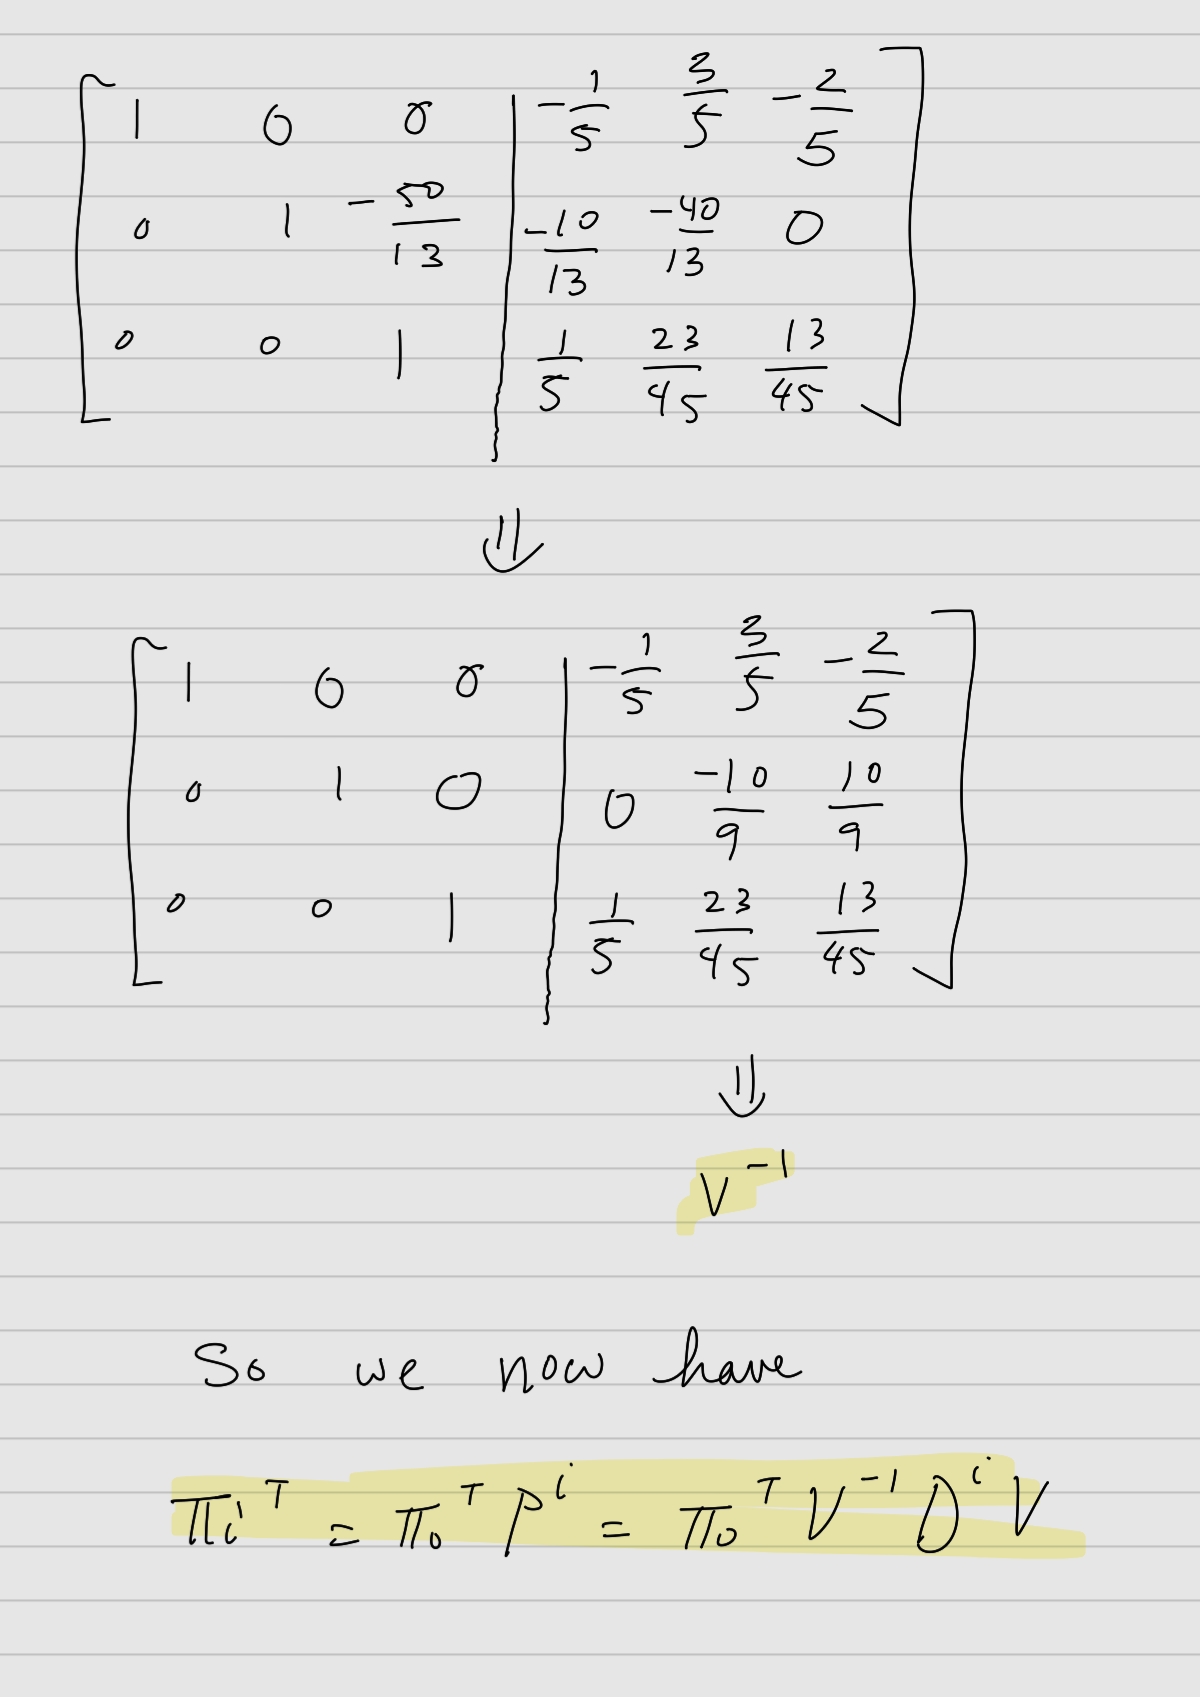 1 0 0 | -1/5 3/5 -2/5
0 1 -50/13 | -10/13 -40/13 0
0 0 1 | 1/5 23/45 13/45
⇓
1 0 0 | -1/5 3/5 -2/5
0 1 0 | 0 -10/9 10/9
0 0 1 | 1/5 23/45 13/45
⇓
V⁻¹
So we now have
πᵢᵀ = π₀ᵀ Pⁱ = π₀ᵀ V⁻¹ Dⁱ V